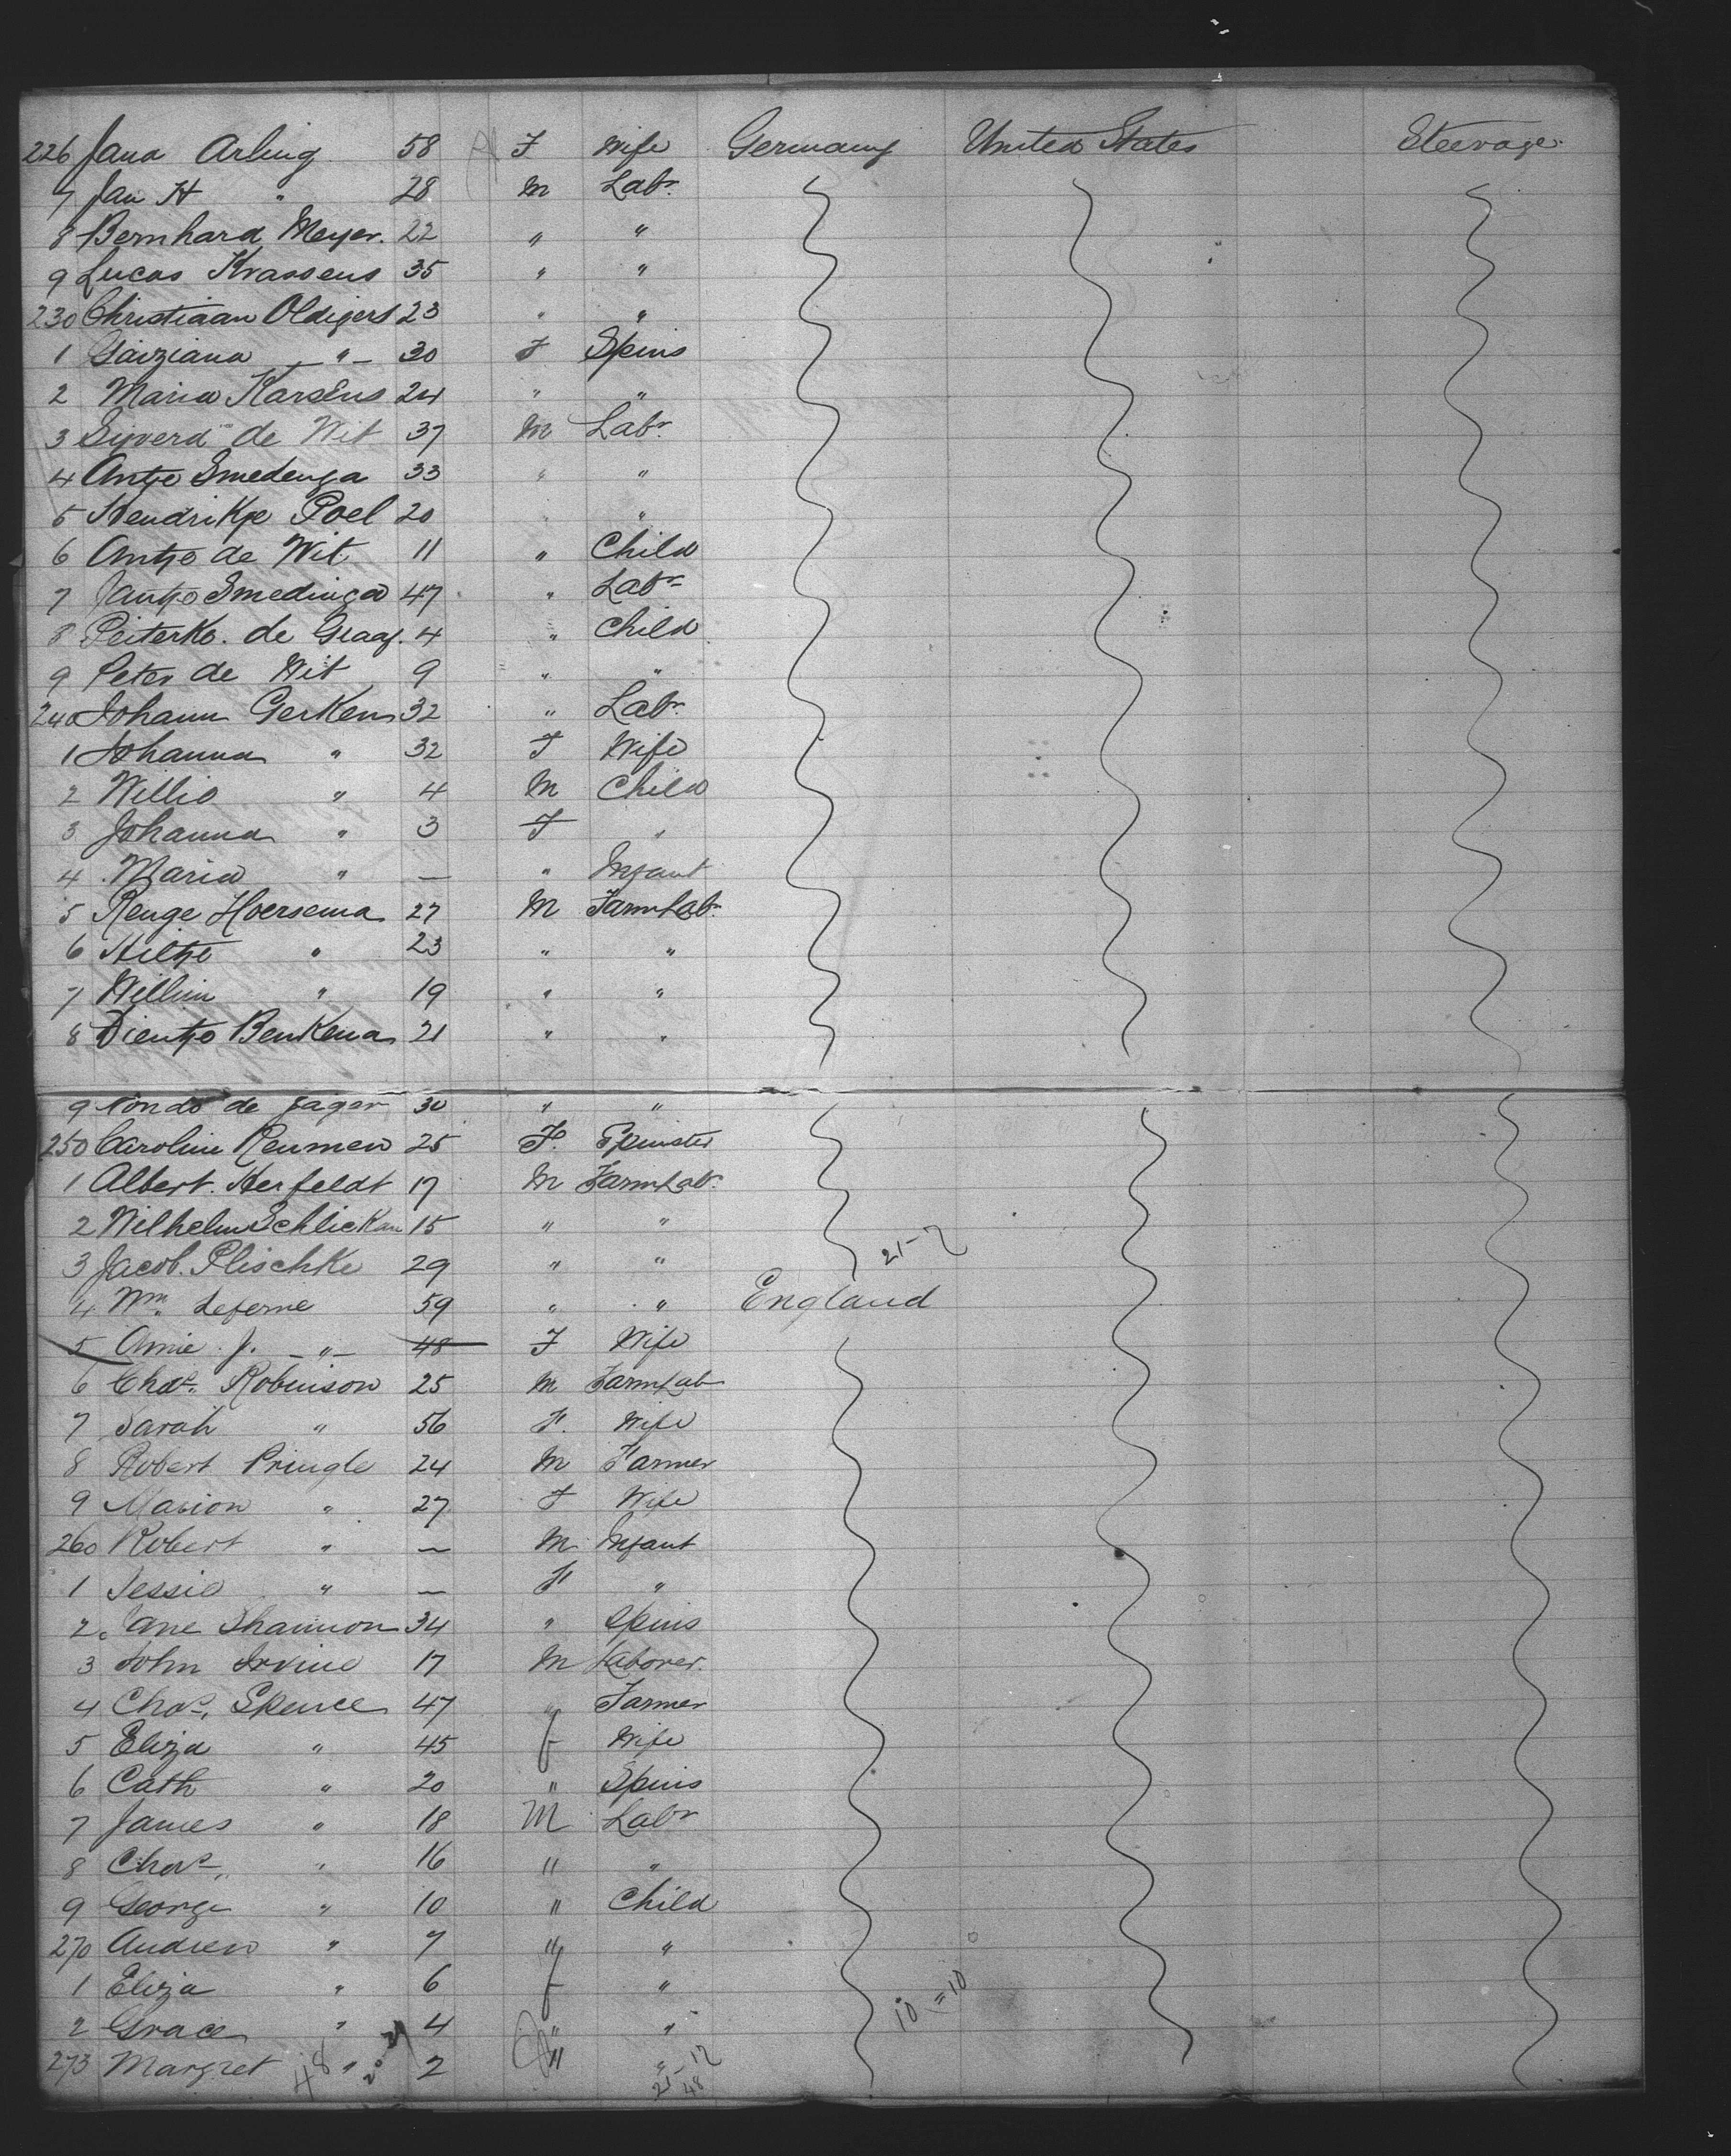 226 Jana Arling 58 F Wife Germany United States Steerage
7 Jan H " 28 M Labr
8 Bernhard Meyer. 22 " "
9 Lucas Krassens 35 " "
230 Christiaan Oldigers 23 " "
1 " 30 F Spins
2 Maria Karsens 24 " "
3 Sijverd de Wit 37 M Labr
4 Antje Smedenga 33 " "
5 Hendrikje Poel 20 " "
6 Antje de Wit 11 " Child
7 Jantje Smedinga 47 " Labr
8 Peiterke. de Graaf. 4 " Child
9 Peter de Wit 9 " "
240 Johann Gerkens 32 " Labr
1 Johanna " 32 F Wife
2 Willie " 4 M Child
3 Johanna " 3 F "
4 Maria " — " Infant
5 Renge Hoersema 27 M Farm Labr
6 Hiltje " 23 " "
7 Willim " 19 " "
8 Dientje Benkema 21 " "
9 de Jager 30 " "
250 Caroline Reumen 25 F. Spinster
1 Albert. Herfeldt 17 M Farm Labr
2 Wilhelm Schlickau 15 " "
3 Jacob. Plischke 29 " " 21-2
4 Wm. Leferne 59 " " England
5 Amie J. " 48 F Wife
6 Chas. Robinson 25 M Farm Lab
7 Sarah " 56 F. Wife
8 Robert Pringle 24 M Farmer
9 Marion " 27 F Wife
260 Robert " — M Infant
1 Jessie " — F "
2 Jane Shannon 34 " Spins
3 John Irvine 17 M Laborer.
4 Chas. Spence 47 " Farmer
5 Eliza " 45 f Wife
6 Cath " 20 " Spins
7 James " 18 M Labr
8 Chas. " 16 " "
9 George " 10 " Child
270 Andrew " 7 " "
1 Eliza " 6 f "
2 Grace " 4 " " 10 = 10
273 Margret " 2 " "
48
21-12
48